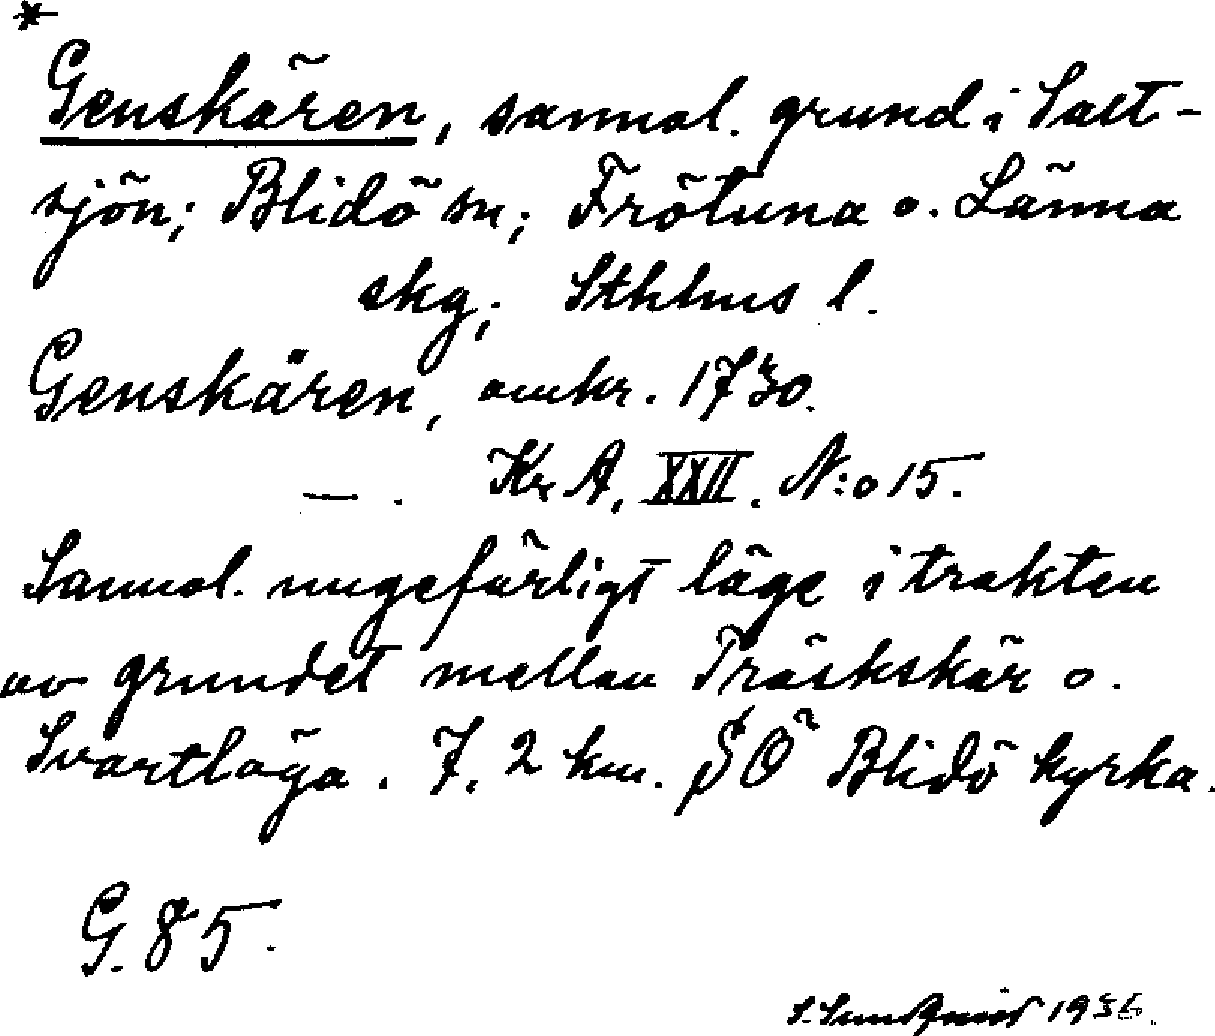 *
Genskären, sannol. grund i Salt-
sjön; Blidö sn; Frötuna o. Länna
skg; Sthlms l.
Genskären, omkr. 1730.
— . Kr A, XXII. N:o 15.
Sannol. ungefärligt läge i trakten
av grundet mellan Träskskär o.
Svartlöga. 7,2 km. SÖ Blidö kyrka.
G. 85.
S. 1936.